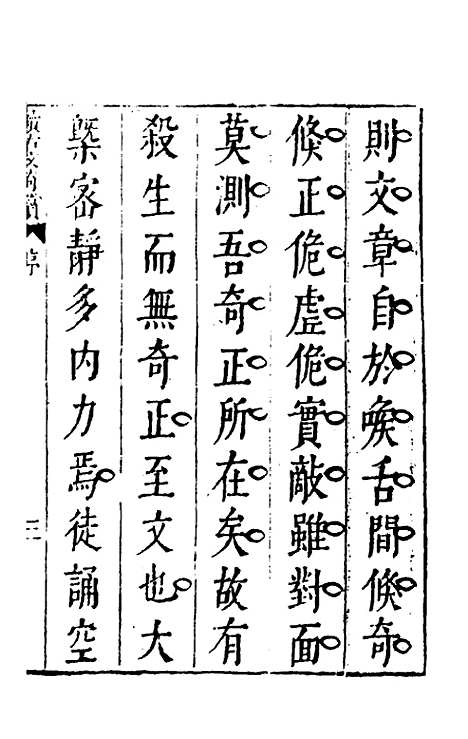 則文章自於喉舌間倏奇
倏正佹虛佹實敵雖對面
莫測吾奇正所在矣故有
殺生而無奇正至文也大
槩密靜多内力焉徒誦空
序